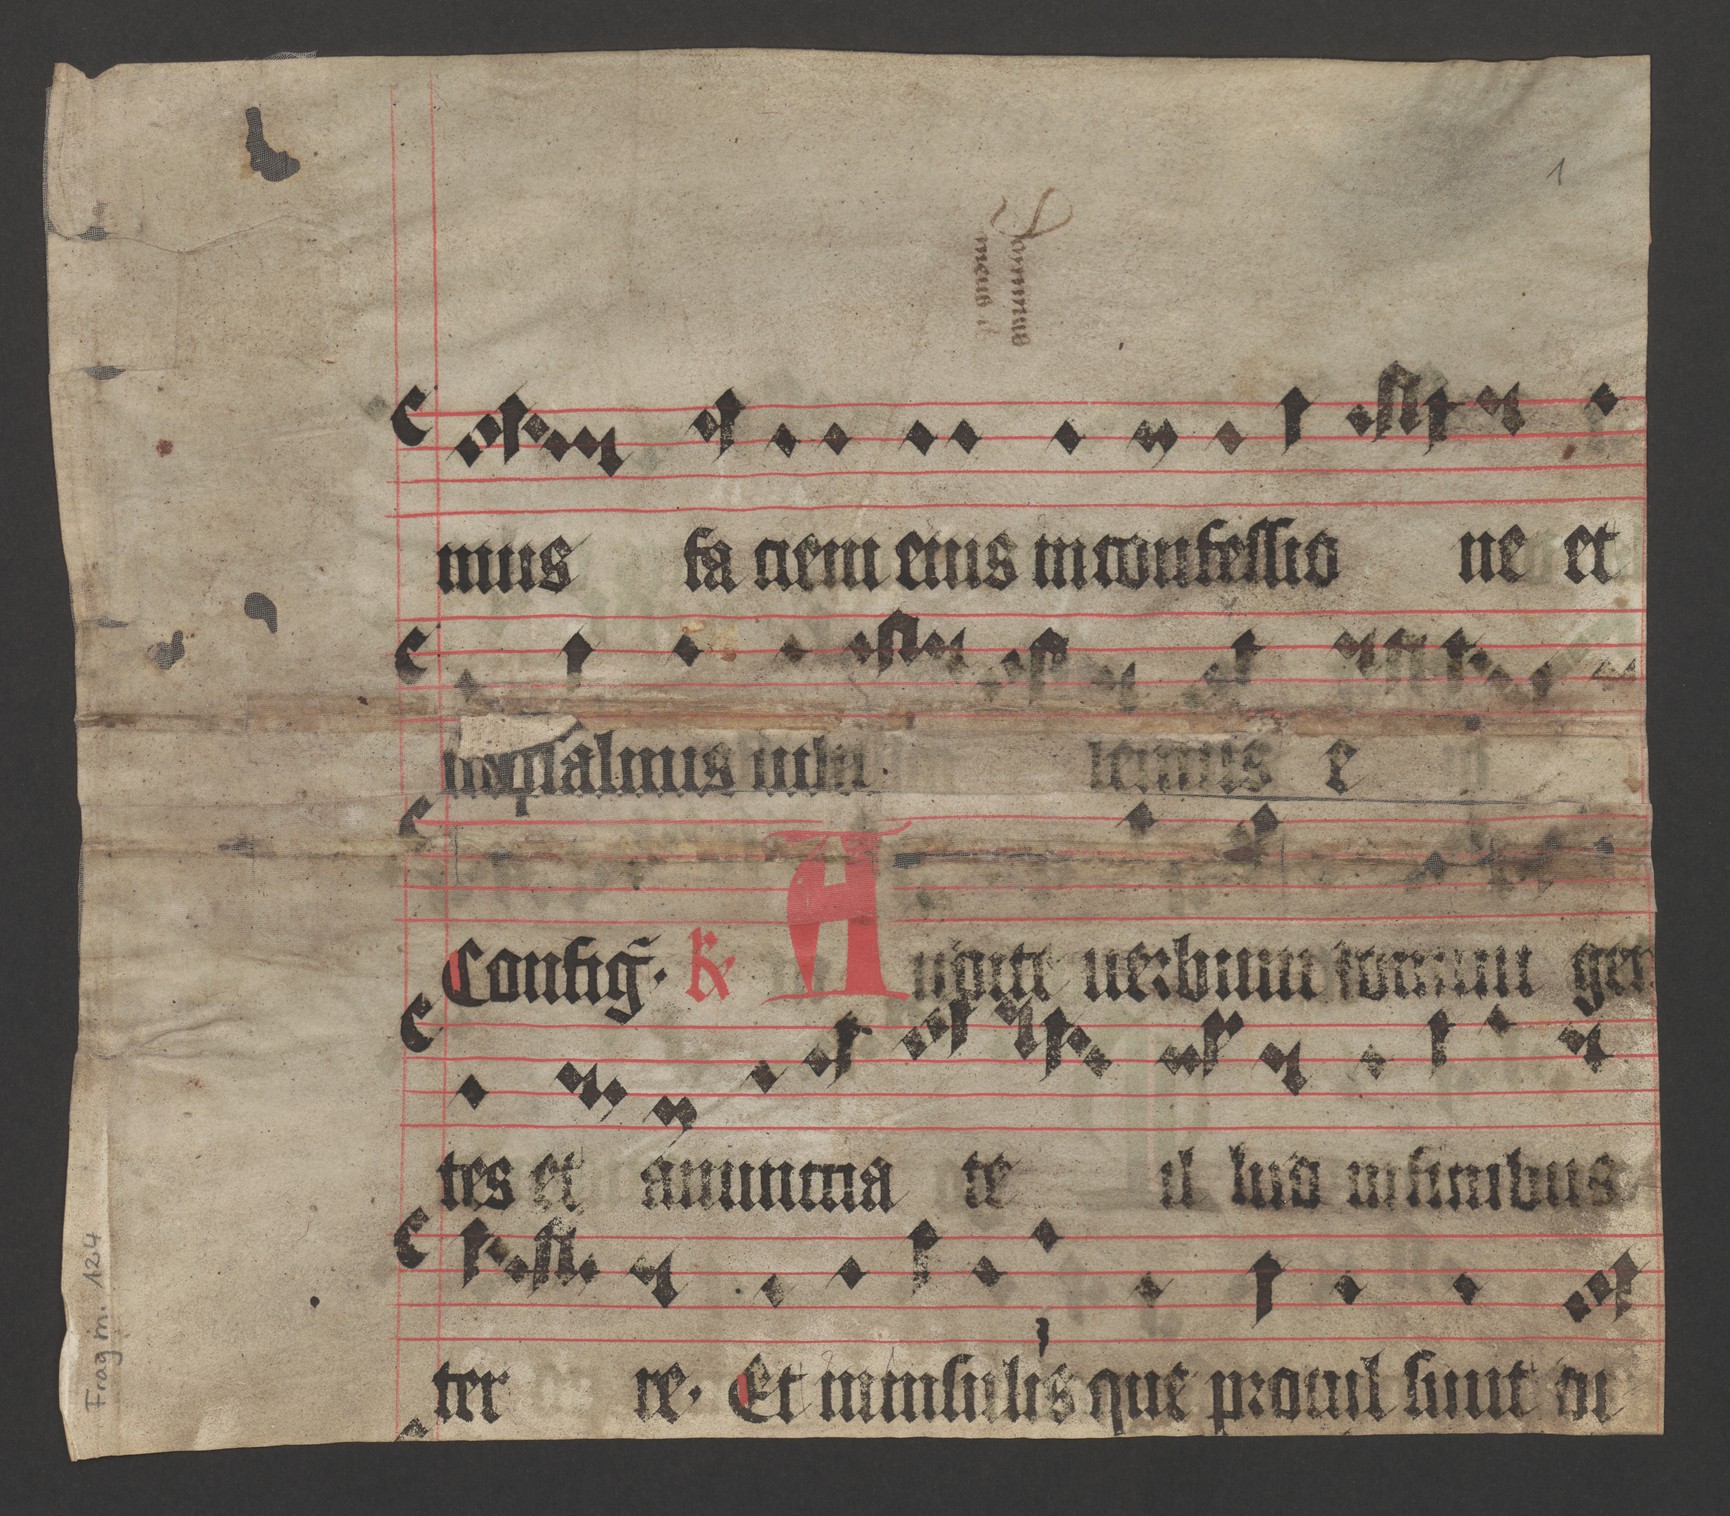 1
Dominus
meus
mus fa ciem eius in confessio ne et
in psalmis iubi lemus e i
Config̃. ℟ Audite uerbum domini gen
tes et anuncia te il lud in finibus
ter re. Et in insulis que procul sunt di
Fragm. 124